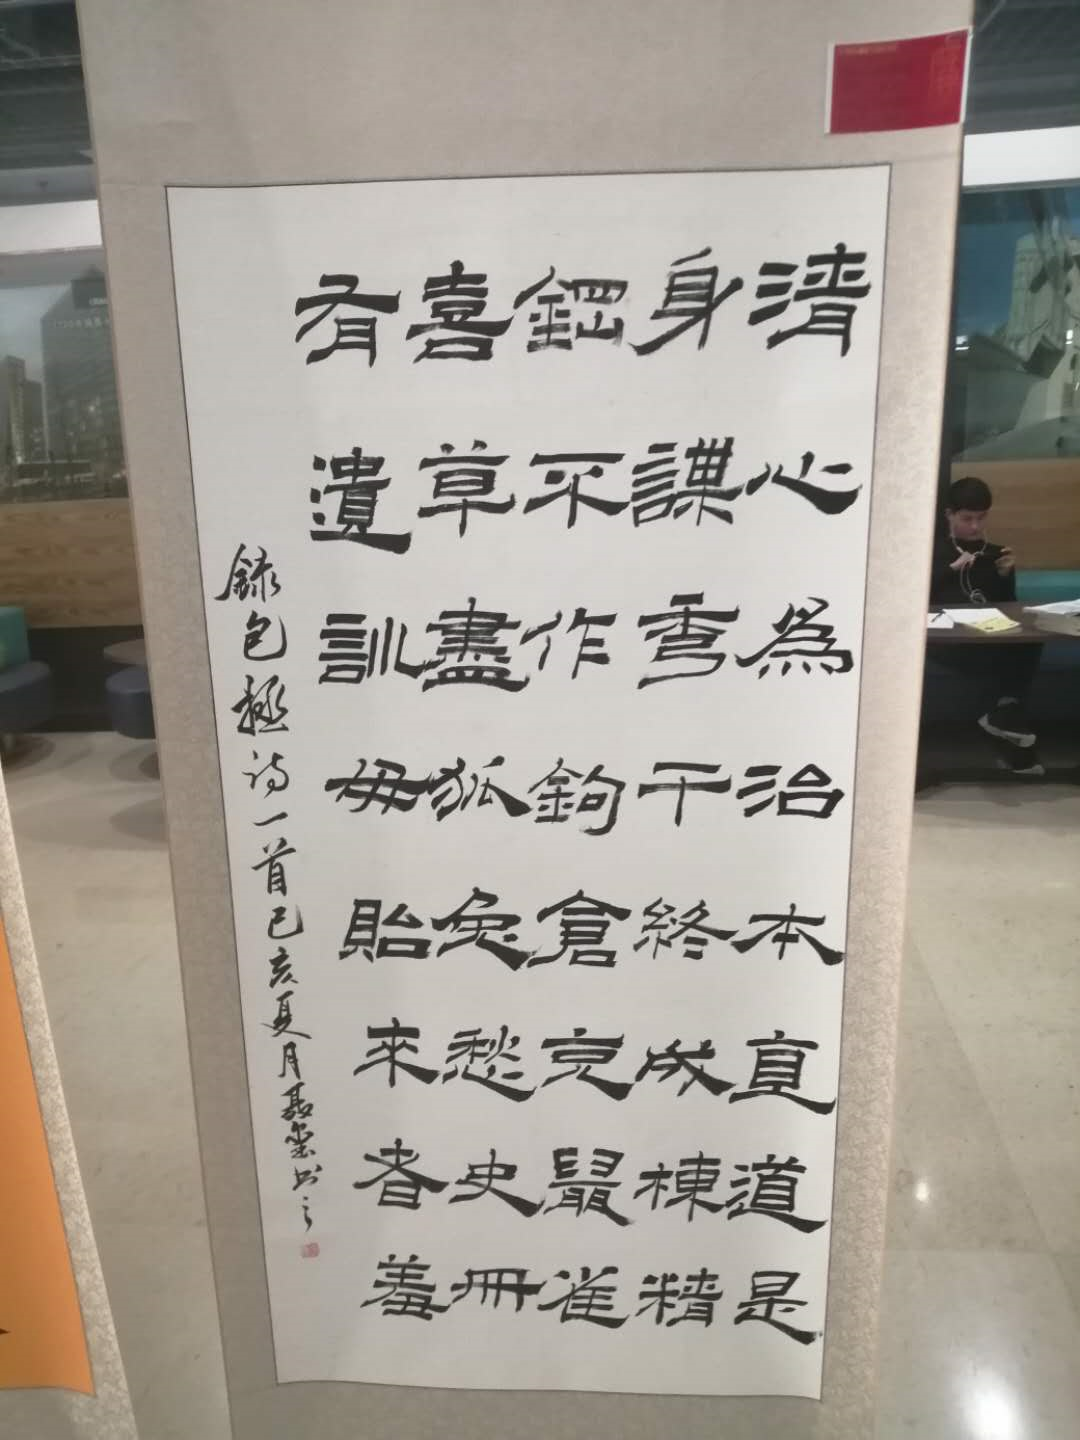 清心為治本直道是
身謀秀干終成棟精
鋼不作鉤倉充鼠雀
喜草盡狐兔愁史冊
有遺訓毋貽來者羞
録包拯诗一首己亥夏月书之